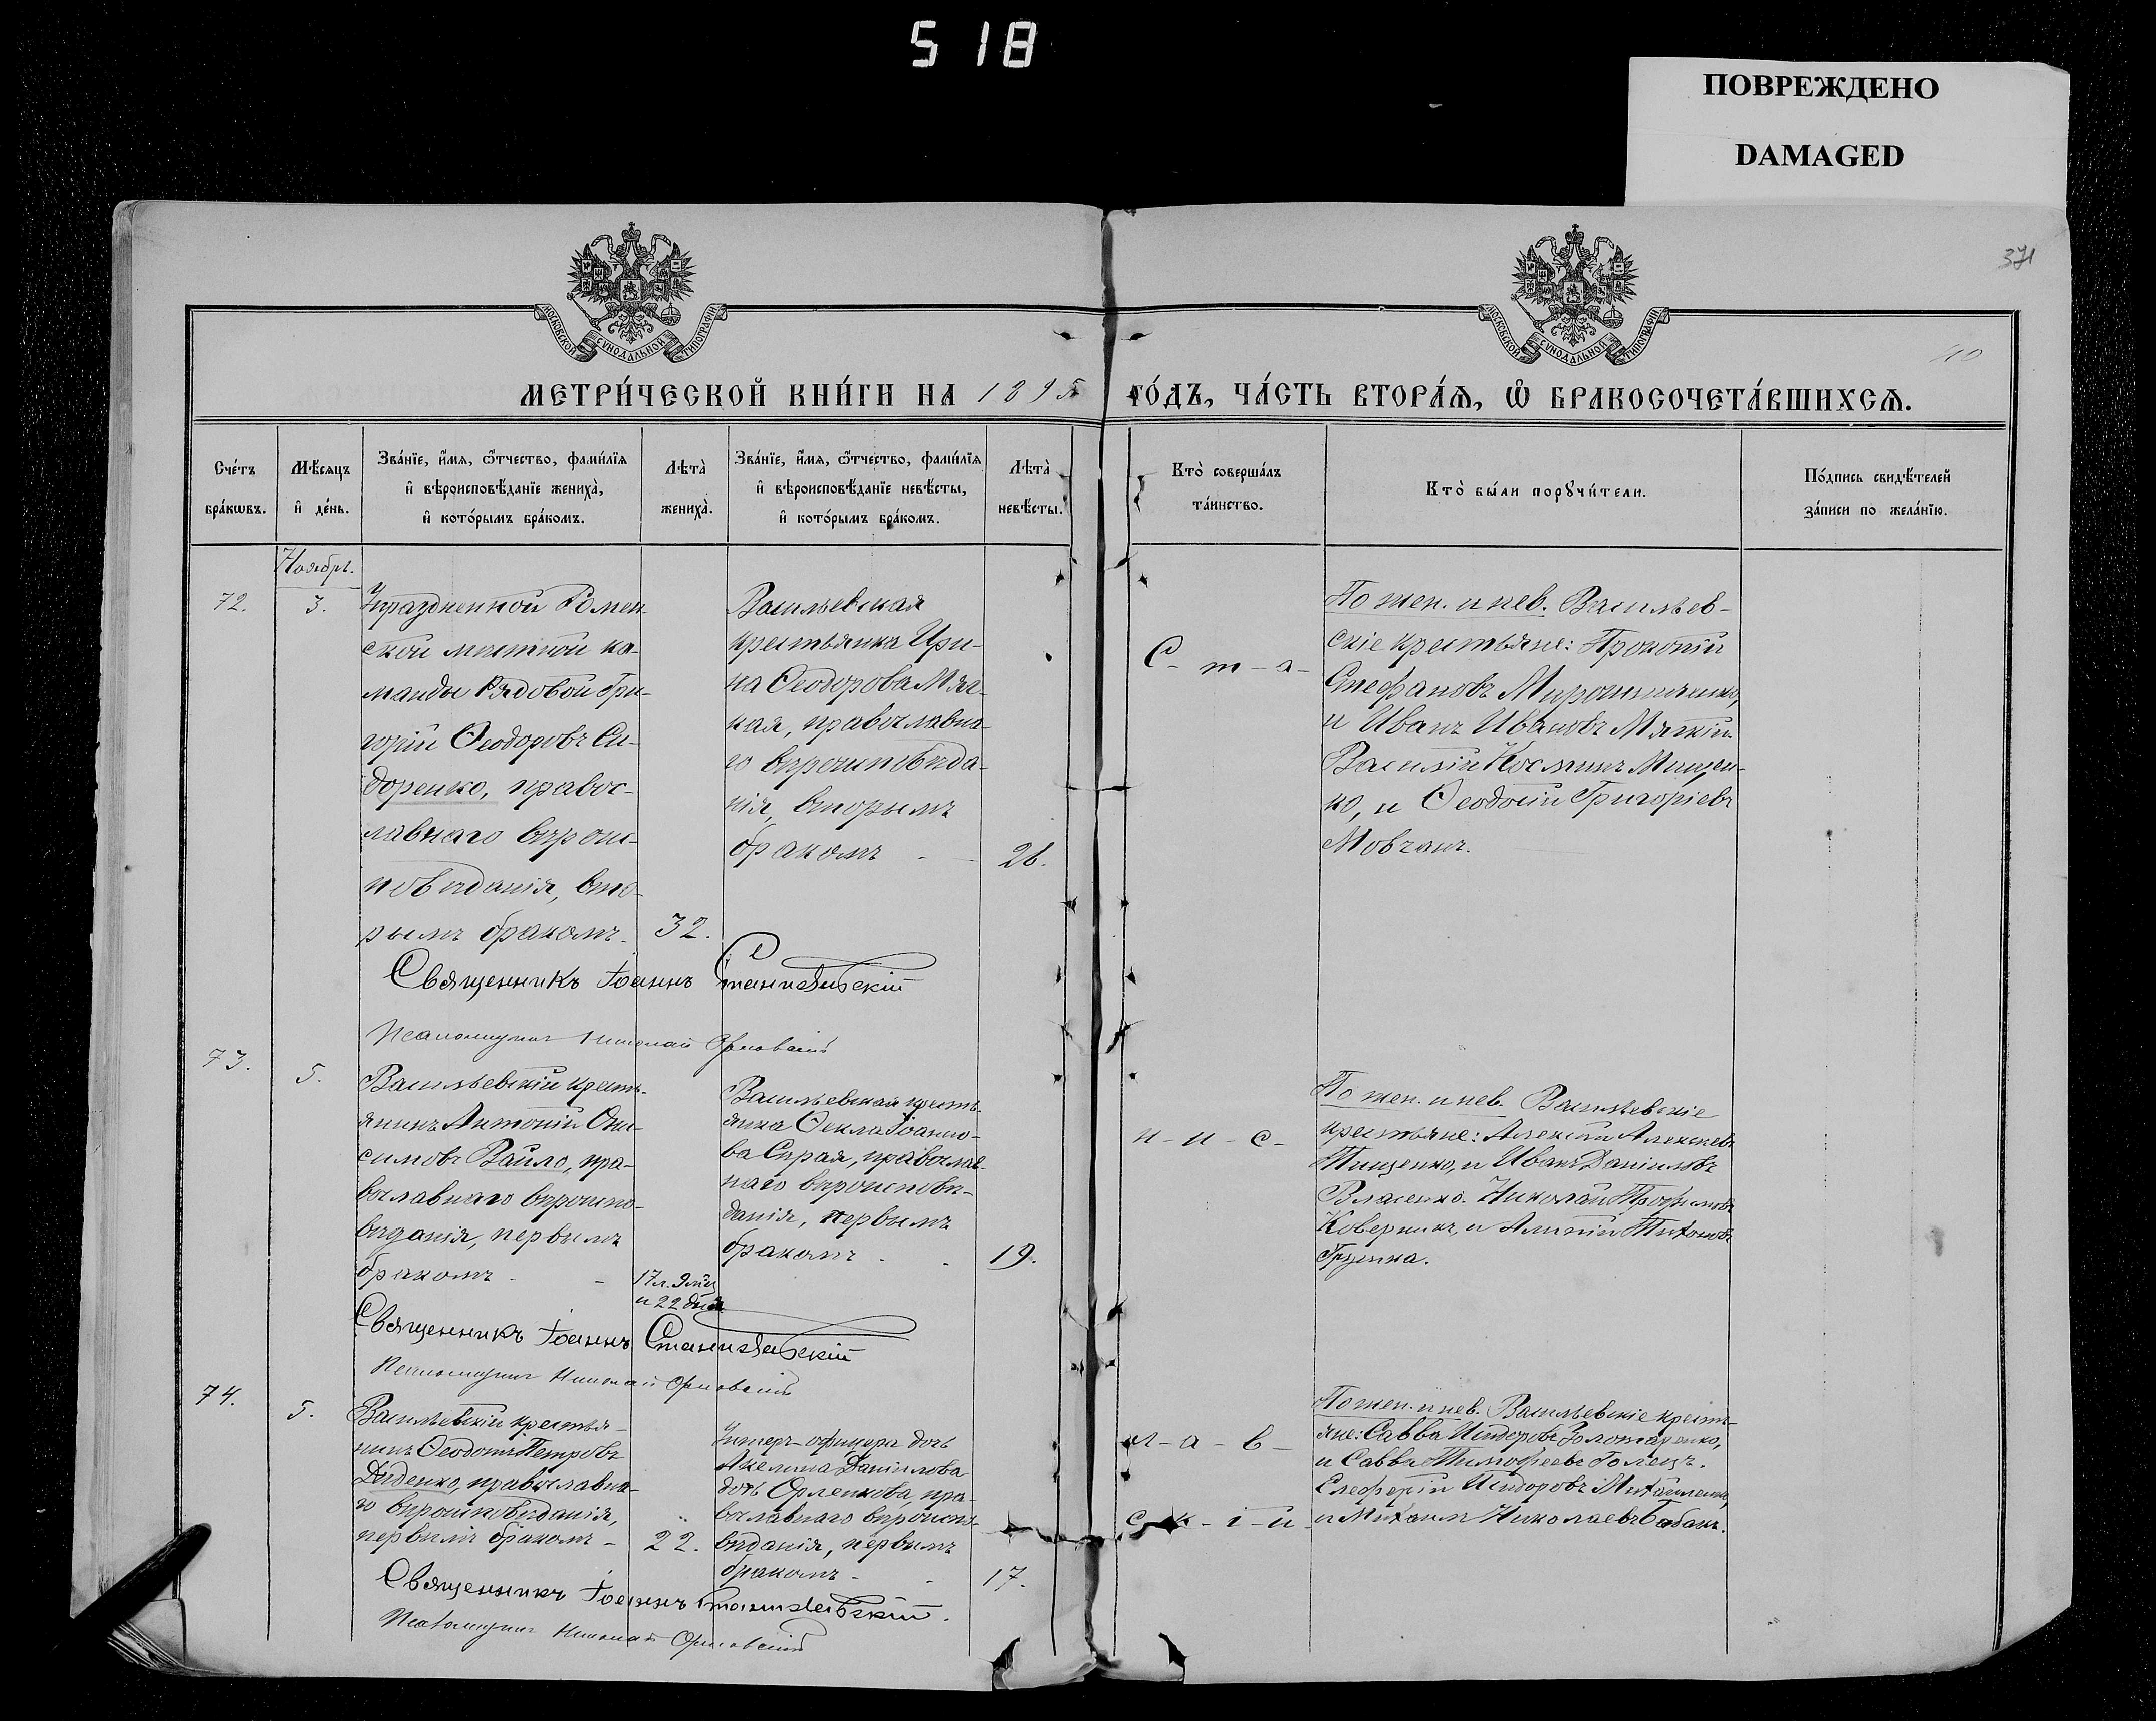 518
ПОВРЕЖДЕНО
DAMAGED
371
МОСКОВСКОЙ СѴНОДАЛЬНОЙ ТИПОГРАФІИ
МОСКОВСКОЙ СѴНОДАЛЬНОЙ ТИПОГРАФІИ
40
МЕТРИ́ЧЕСКОЙ КНИ́ГИ НА 1895 ГО́ДЪ, ЧА́СТЬ ВТОРА́Ѧ, Ѽ БРАКОСОЧЕТА́ВШИХСѦ.
Сче́тъ
бра́кѡвъ.
Мѣ́сяцъ
и҆ де́нь.
Зва́нїе, и҆́мѧ, ѻ҆́тчество, фами́лїѧ
и҆ вѣроисповѣ́данїе жениха̀,
и҆ кото́рымъ бра́комъ.
Лѣта̀
жениха̀.
Зва́нїе, и҆́мѧ, ѻ҆́тчество, фами́лїѧ
и҆ вѣроисповѣ́данїе невѣ́сты,
и҆ кото́рымъ бра́комъ.
Лѣта̀
невѣ́сты.
Кто̀ соверша́лъ
та́инство.
Кто̀ бы́ли порꙋчи́тели.
По́дпись свидѣ́телей
за́писи по жела́нїю.
Ноябрь.
72.
3.
Упраздненной Ромен-
ской мѣстной ко-
манды Рядовой Гри-
горій Ѳеодоровъ Си-
доренко, правос-
лавнаго вѣроис-
повѣданія, вто-
рымъ бракомъ.
32.
Васильевская
крестьянка Ири-
на Ѳеодорова Мяг-
кая, православна-
го вѣроисповѣда-
нія, вторымъ
бракомъ - -
26.
С - т - а -
По жен. и нев. Васильев-
скіе крестьяне: Прокопій
Стефановъ Мирошниченко,
и Иванъ Ивановъ Мягкій.
Василій Косминъ Мищен-
ко, и Ѳеодосій Григоріевъ
Мовчанъ.
Священникъ Іоаннъ Станиславскій
Псаломщикъ Николай Орловскій
73.
5.
Васильевскій кресть-
янинъ Антоній Они-
симовъ Вайло, пра-
вославнаго вѣроиспо-
вѣданія, первымъ
бракомъ - -
17 л. 9 м.
и 22 дня
Васильевская кресть-
янка Ѳекла Іоанно-
ва Сѣрая, православ-
наго вѣроисповѣ-
данія, первымъ
бракомъ - -
19.
н - и - с -
По жен. и нев. Васильевскіе
крестьяне: Алексій Алексіевъ
Тищенко, и Иванъ Даніиловъ
Власенко. Николай Трофимовъ
и Тихоновъ
Священникъ Іоаннъ Станиславскій
Псаломщикъ Николай Орловскій
74.
5.
Васильевскій крестья-
нинъ Ѳеодотъ Петровъ
Диденко, православна-
го вѣроисповѣданія,
первымъ бракомъ -
22.
Унтеръ-офицера дочь
Акелина Даніилова
дочь Орленкова, пра-
вославнаго вѣроиспо-
вѣданія, первымъ
бракомъ - -
17.
л - а - в -
с - к - і - й -
По жен. и нев. Васильевскіе кресть-
яне: Савва Исидоровъ Золотаренко,
и Савва Тимофеевъ Голецъ.
Елеферій Исидоровъ Михайленко,
и Михаилъ Николаевъ Бабакъ.
Священникъ Іоаннъ Станиславскій.
Псаломщикъ Николай Орловскій